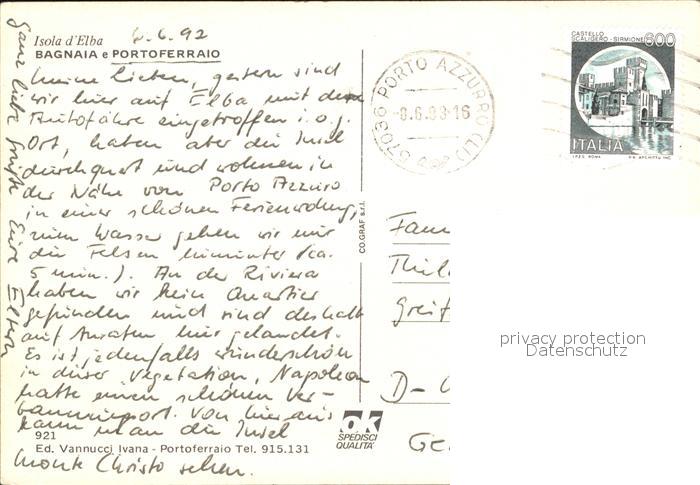 6.6.92
Isola d'Elba
BAGNAIA e PORTOFERRAIO
Meine Lieben, gestern sind
wir hier auf Elba mit der
Autofähre eingetroffen i. o. g.
Ort, haben aber die Insel
durchquert und wohnen in
der Nähe von Porto Azzuro
in einer schönen Ferienwohng,
zum Wasser gehen wir nur
die Felsen hinunter (ca.
5 min.). An der Riviera
haben wir kein Quartier
gefunden und sind deshalb
auf Anraten hier gelandet.
Es ist jedenfalls wunderschön
in dieser Vegetation, Napoleon
hatte einen schönen Ver-
bannungsort. Von hier aus
kann man die Insel
Monte Christo sehen.
Ganz liebe Grüße Eure Eltern
921
Ed. Vannucci Ivana - Portoferraio Tel. 915.131
CO.GRAF s.r.l.
ok
SPEDISCI
QUALITA'
57036 PORTO AZZURRO (LI)
-8.6.93-16
CASTELLO
SCALIGERO - SIRMIONE
600
ITALIA
I.P.Z.S. ROMA
Fam
Greif
D-
privacy protection
Datenschutz